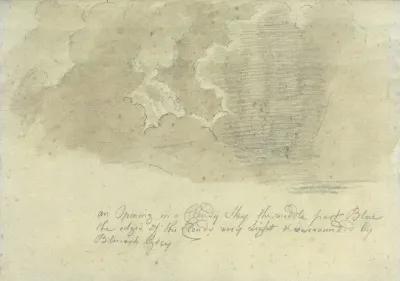 an Opening in a Cloudy Sky the middle part Blue
the edges of the Clouds very light & surrounded by
Blueish Grey